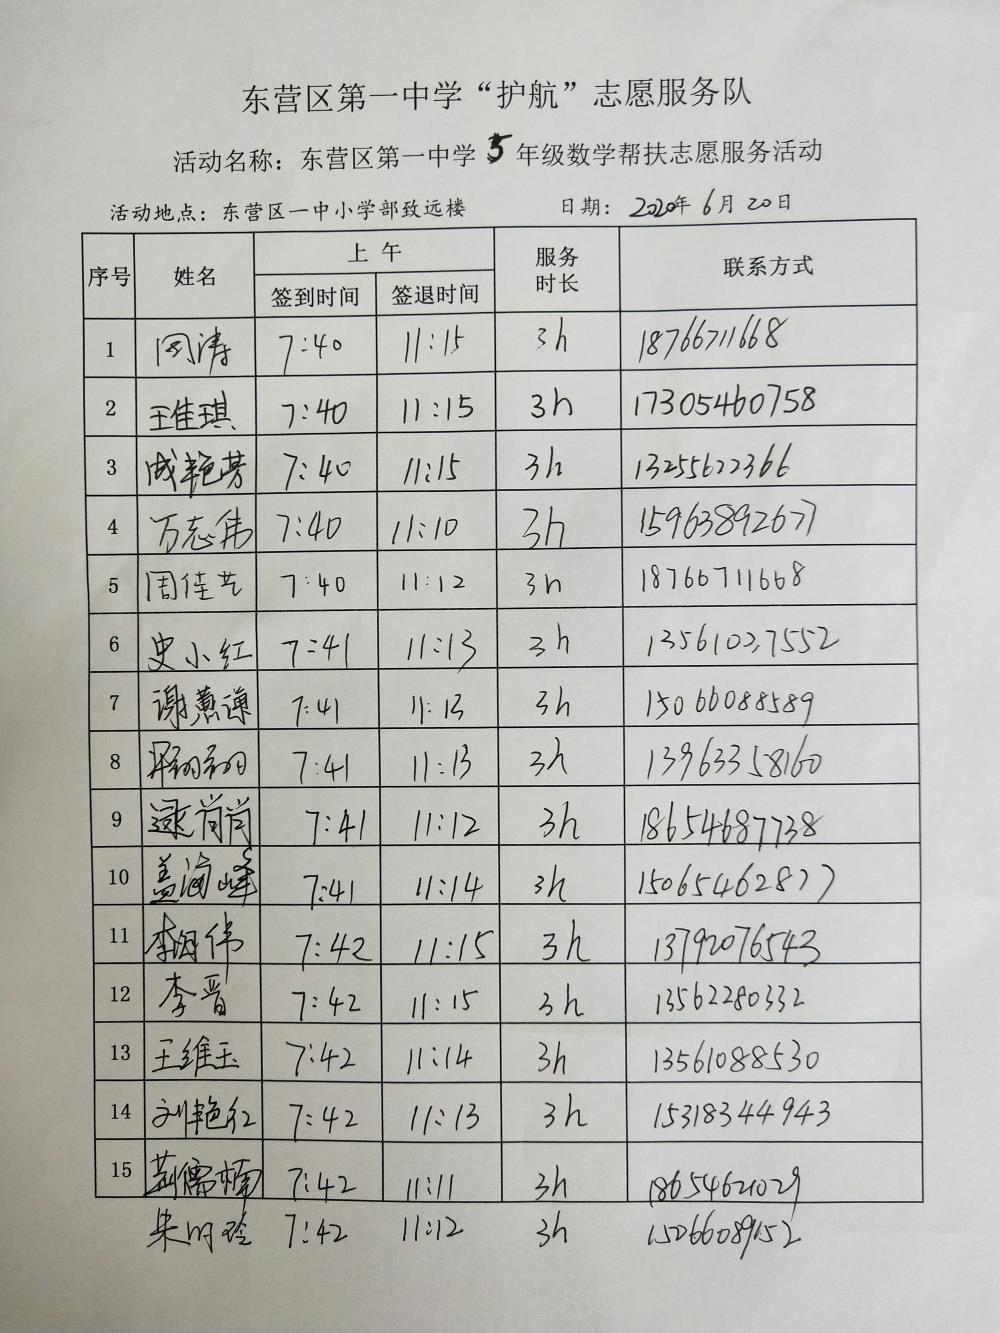 东营区第一中学“护航”志愿服务队
活动名称：东营区第一中学 5 年级数学帮扶志愿服务活动
活动地点：东营区一中小学部致远楼 日期：2020年6月20日
序号 姓名 上午 服务时长 联系方式
签到时间 签退时间
1 周涛 7:40 11:15 3h 18766711668
2 王佳琪 7:40 11:15 3h 17305460758
3 成艳芳 7:40 11:15 3h 13255622366
4 万志伟 7:40 11:10 3h 15963892677
5 周佳艺 7:40 11:12 3h 18766711668
6 史小红 7:41 11:13 3h 13561027552
7 谢蕙谦 7:41 11:13 3h 15066088589
8 7:41 11:13 3h 13963358160
9 逯肖肖 7:41 11:12 3h 18654687738
10 盖海峰 7:41 11:14 3h 15065462877
11 李伟 7:42 11:15 3h 13792076543
12 李晋 7:42 11:15 3h 13562280332
13 王维玉 7:42 11:14 3h 13561088530
14 刘艳红 7:42 11:13 3h 15318344943
15 荆儒楠 7:42 11:11 3h 18654621029
朱明玲 7:42 11:12 3h 15066089152